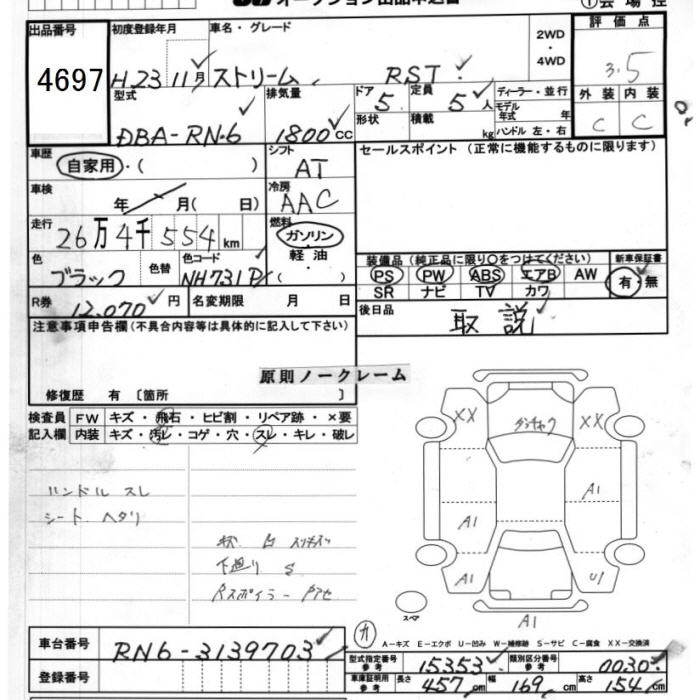 出品番号 初度登録年月 車名・グレード ①会場控
2WD・4WD 評価点
4697 H.23 11月 ストリーム RST 3.5
型式 排気量 ドア 5 定員 5人 ディーラー・並行 外装 内装
DBA-RN6 1800cc 形状 積載 kg モデル年式 年 C C
ハンドル 左・右
車歴 自家用・( ) シフト AT セールスポイント (正常に機能するものに限ります)
車検 年 月( 日) 冷房 AAC
走行 26万4千554km 燃料 ガソリン・軽油・( )
色 ブラック 色替 色コード NH731P
装備品 (純正品に限り○をつけてください) 新車保証書
PS PW ABS エアB AW 有・無
SR ナビ TV カワ
R券 12,070円 名変期限 月 日 後日品 取説
注意事項申告欄(不具合内容等は具体的に記入して下さい)
原則ノークレーム
修復歴 有〔箇所 〕
検査員 FW キズ・飛石・ヒビ割・リペア跡・×要
記入欄 内装 キズ・汚レ・コゲ・穴・スレ・キレ・破レ
ハンドル スレ
シート ヘタリ
下廻り S
XX XX
A1
A1
A1 U1
スペア A1
A-キズ E-エクボ U-凹み W-補修跡 S-サビ C-腐食 XX-交換済
車台番号 RN6-3139703 型式指定番号 参考 15353 類別区分番号 参考 0030
登録番号 車庫証明用 参考 長さ 457cm 幅 169cm 高さ 154cm